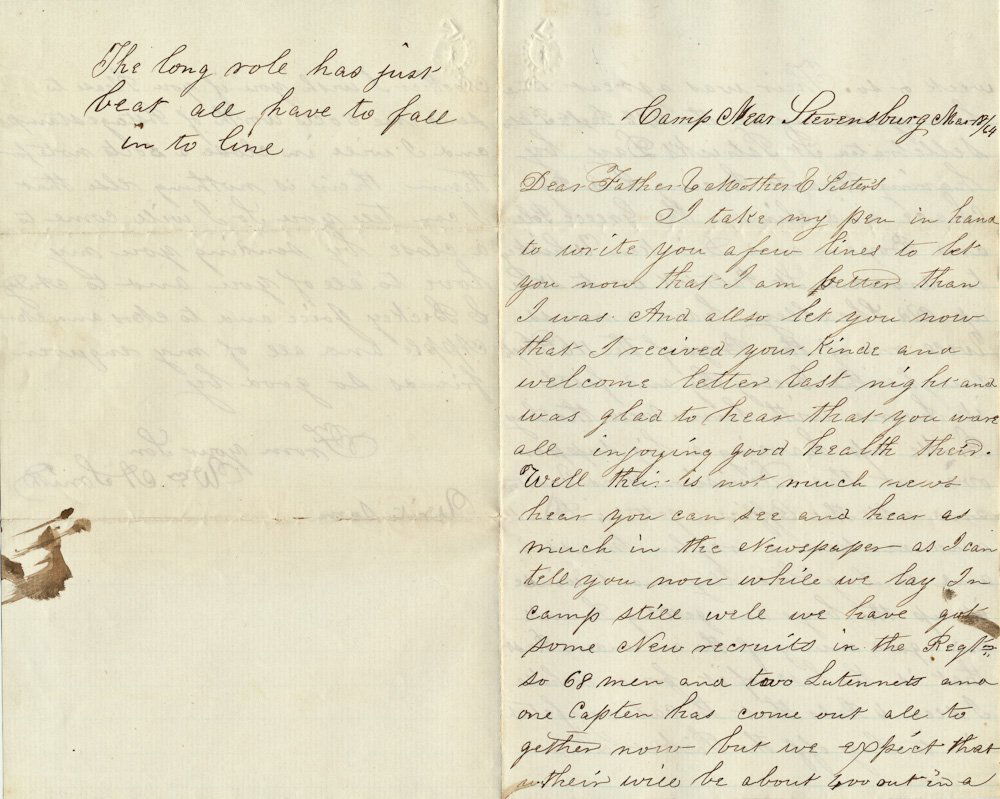 The long role has just
beat all have to fall
in to line
Camp Near Stevensburg Mar /64
Dear Father & Mother & Sisters
I take my pen in hand
to write you a few lines to let
you now that I am better than
I was. And allso let you now
that I recived your kinde and
welcome letter last night and
was glad to hear that you ware
all injoying good health their.
Well their is not much news
hear you can see and hear as
much in the Newspaper as I can
tell you now while we lay In
camp still well we have got
some New recruits in the Regt.
so 68 men and two Lutennets and
one Capten has come out all to
gether now but we expect that
their will be about out in a